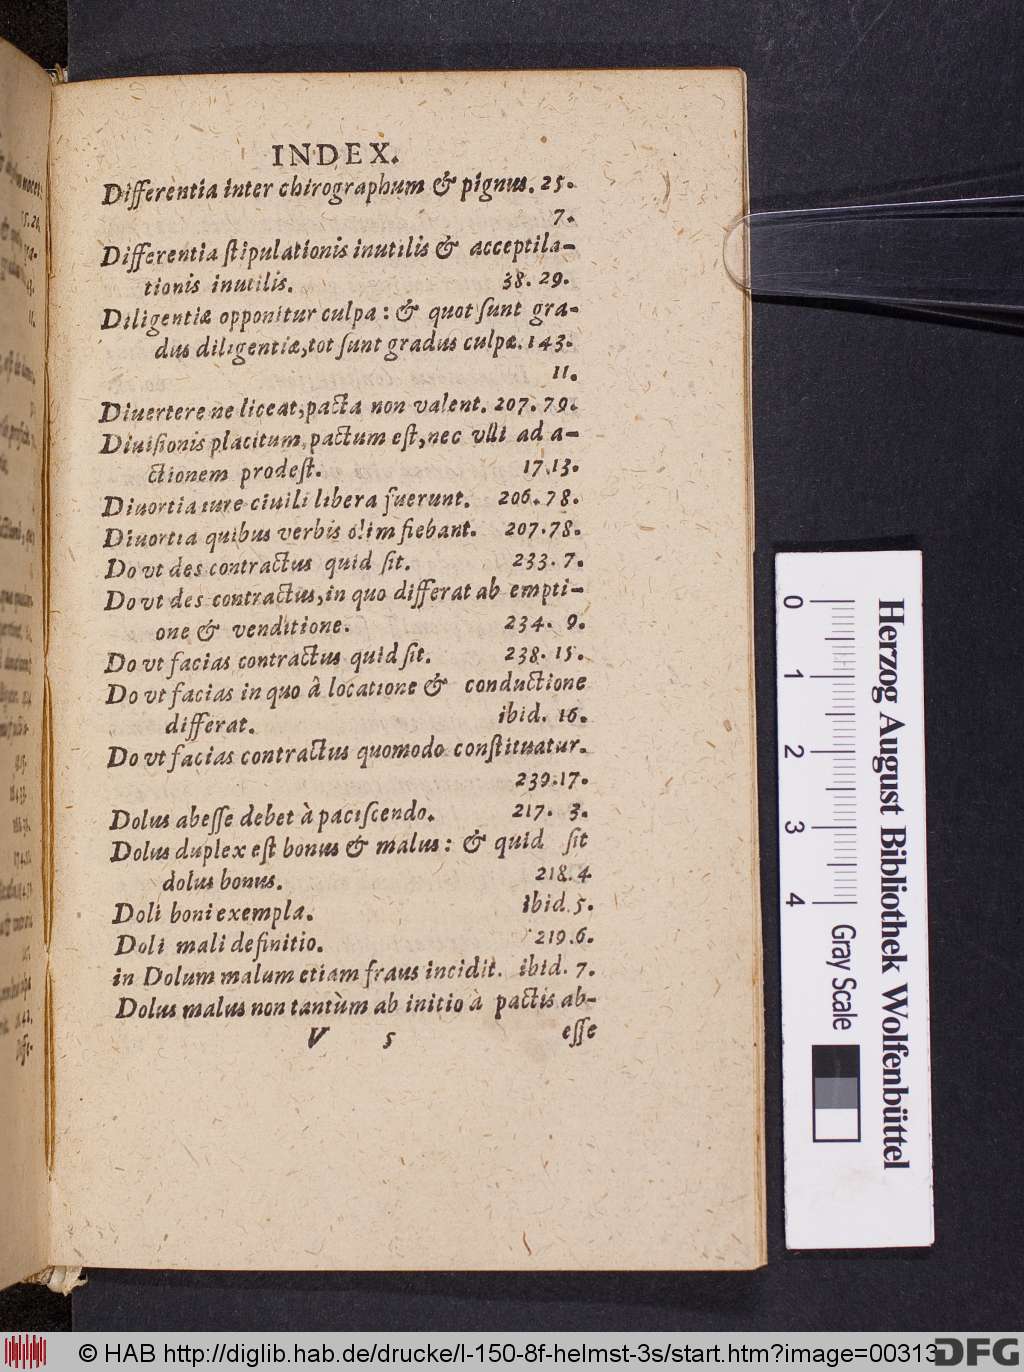 INDEX.
Differentia inter chirographum & pignus. 25.
7.
Differentia ſtipulationis inutilis & acceptila-
tionis inutilis. 38. 29.
Diligentiæ opponitur culpa: & quot ſunt gra-
dus diligentiæ, tot ſunt gradus culpæ. 143.
11.
Diuertere ne liceat, pacta non valent. 207. 79.
Diuiſionis placitum, pactum eſt, nec vlli ad a-
ctionem prodeſt. 17.13.
Diuortia iure ciuili libera fuerunt. 206. 78.
Diuortia quibus verbis olim fiebant. 207.78.
Do vt des contractus quid ſit. 233. 7.
Do vt des contractus, in quo differat ab empti-
one & venditione. 234. 9.
Do vt facias contractus quid ſit. 238. 15.
Do vt facias in quo â locatione & conductione
differat. ibid. 16.
Do vt facias contractus quomodo conſtituatur.
239.17.
Dolus abeſſe debet à paciſcendo. 217. 3.
Dolus duplex eſt bonus & malus: & quid ſit
dolus bonus. 218.4
Doli boni exempla. ibid. 5.
Doli mali definitio. 219.6.
in Dolum malum etiam fraus incidit. ibid. 7.
Dolus malus non tantùm ab initio à pactis ab-
V 5 eſſe
0 1 2 3 4
Gray Scale
Herzog August Bibliothek Wolfenbüttel
© HAB http://diglib.hab.de/drucke/l-150-8f-helmst-3s/start.htm?image=00313
DFG